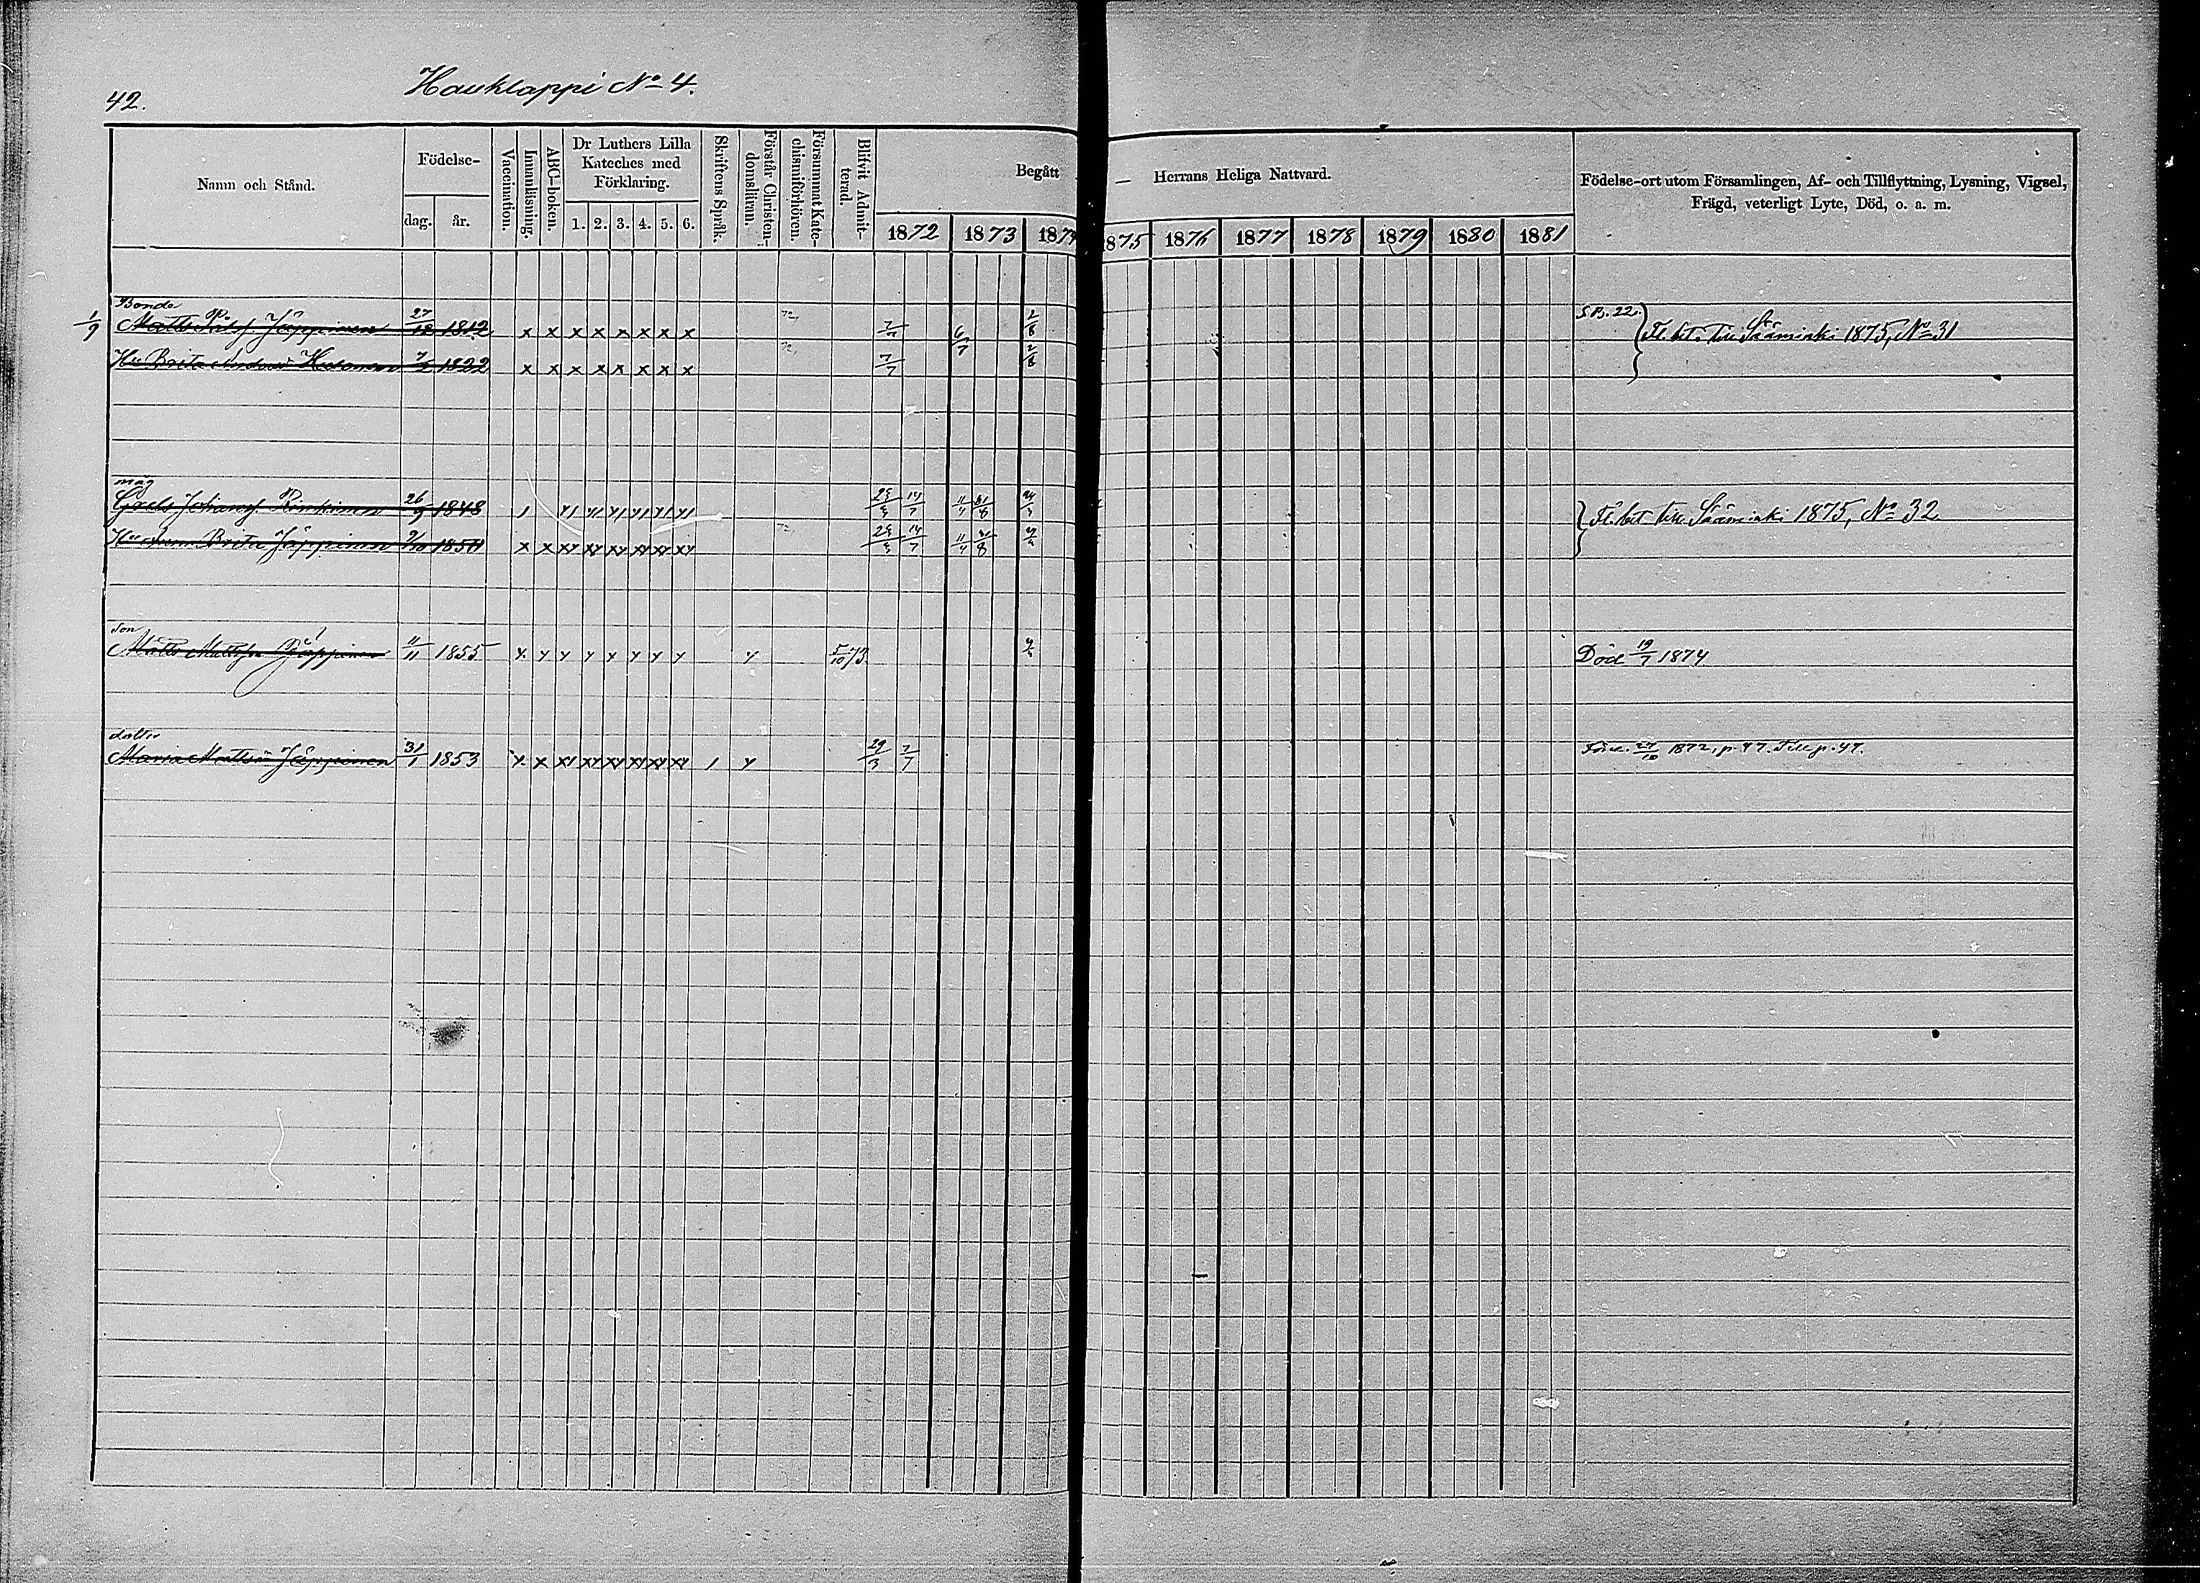 42.
Hauklappi No 4.
Namn och Stånd.
Födelse-
dag.
år.
Vaccination.
Innanläsning.
ABC-boken.
Dr Luthers Lilla
Kateches med
Förklaring.
1. 2. 3. 4. 5. 6.
Skriftens Språk.
Förstår Christen-
domsläran.
Försummat Kate-
chismiförhören.
Blifvit Admit-
terad.
Begått — Herrans Heliga Nattvard.
1872 1873 1874 1875 1876 1877 1878 1879 1880 1881
Födelse-ort utom Församlingen, Af- och Tillflyttning, Lysning, Vigsel,
Frägd, veterligt Lyte, Död, o. a. m.
Bonde
1/9 Matts Pålsf. Jäppinen 27/12 1812 x x x x x x x x 7/7 6/7 2/8 S.B. 22. Fl. bet. till Sääminki 1875, No 31
Hu Brita 1822 x x x x x x x x 7/7 2/8
måg
Johansf. 26/9 1848 14/7 11/4 31/8 Fl. bet till Sääminki 1875, No 32
Hu Anna Brita Jäppinen x x 14/7 11/4 31/8
son
Matts Mattsson Jäppinen 11/11 1855 y y y y y y y y y 5/10 73. Död 19/7 1874
dotter
Maria Mattsd. Jäppinen 31/1 1853 29/3 7/7 27/10 1872, p. 47. Till p. 47.